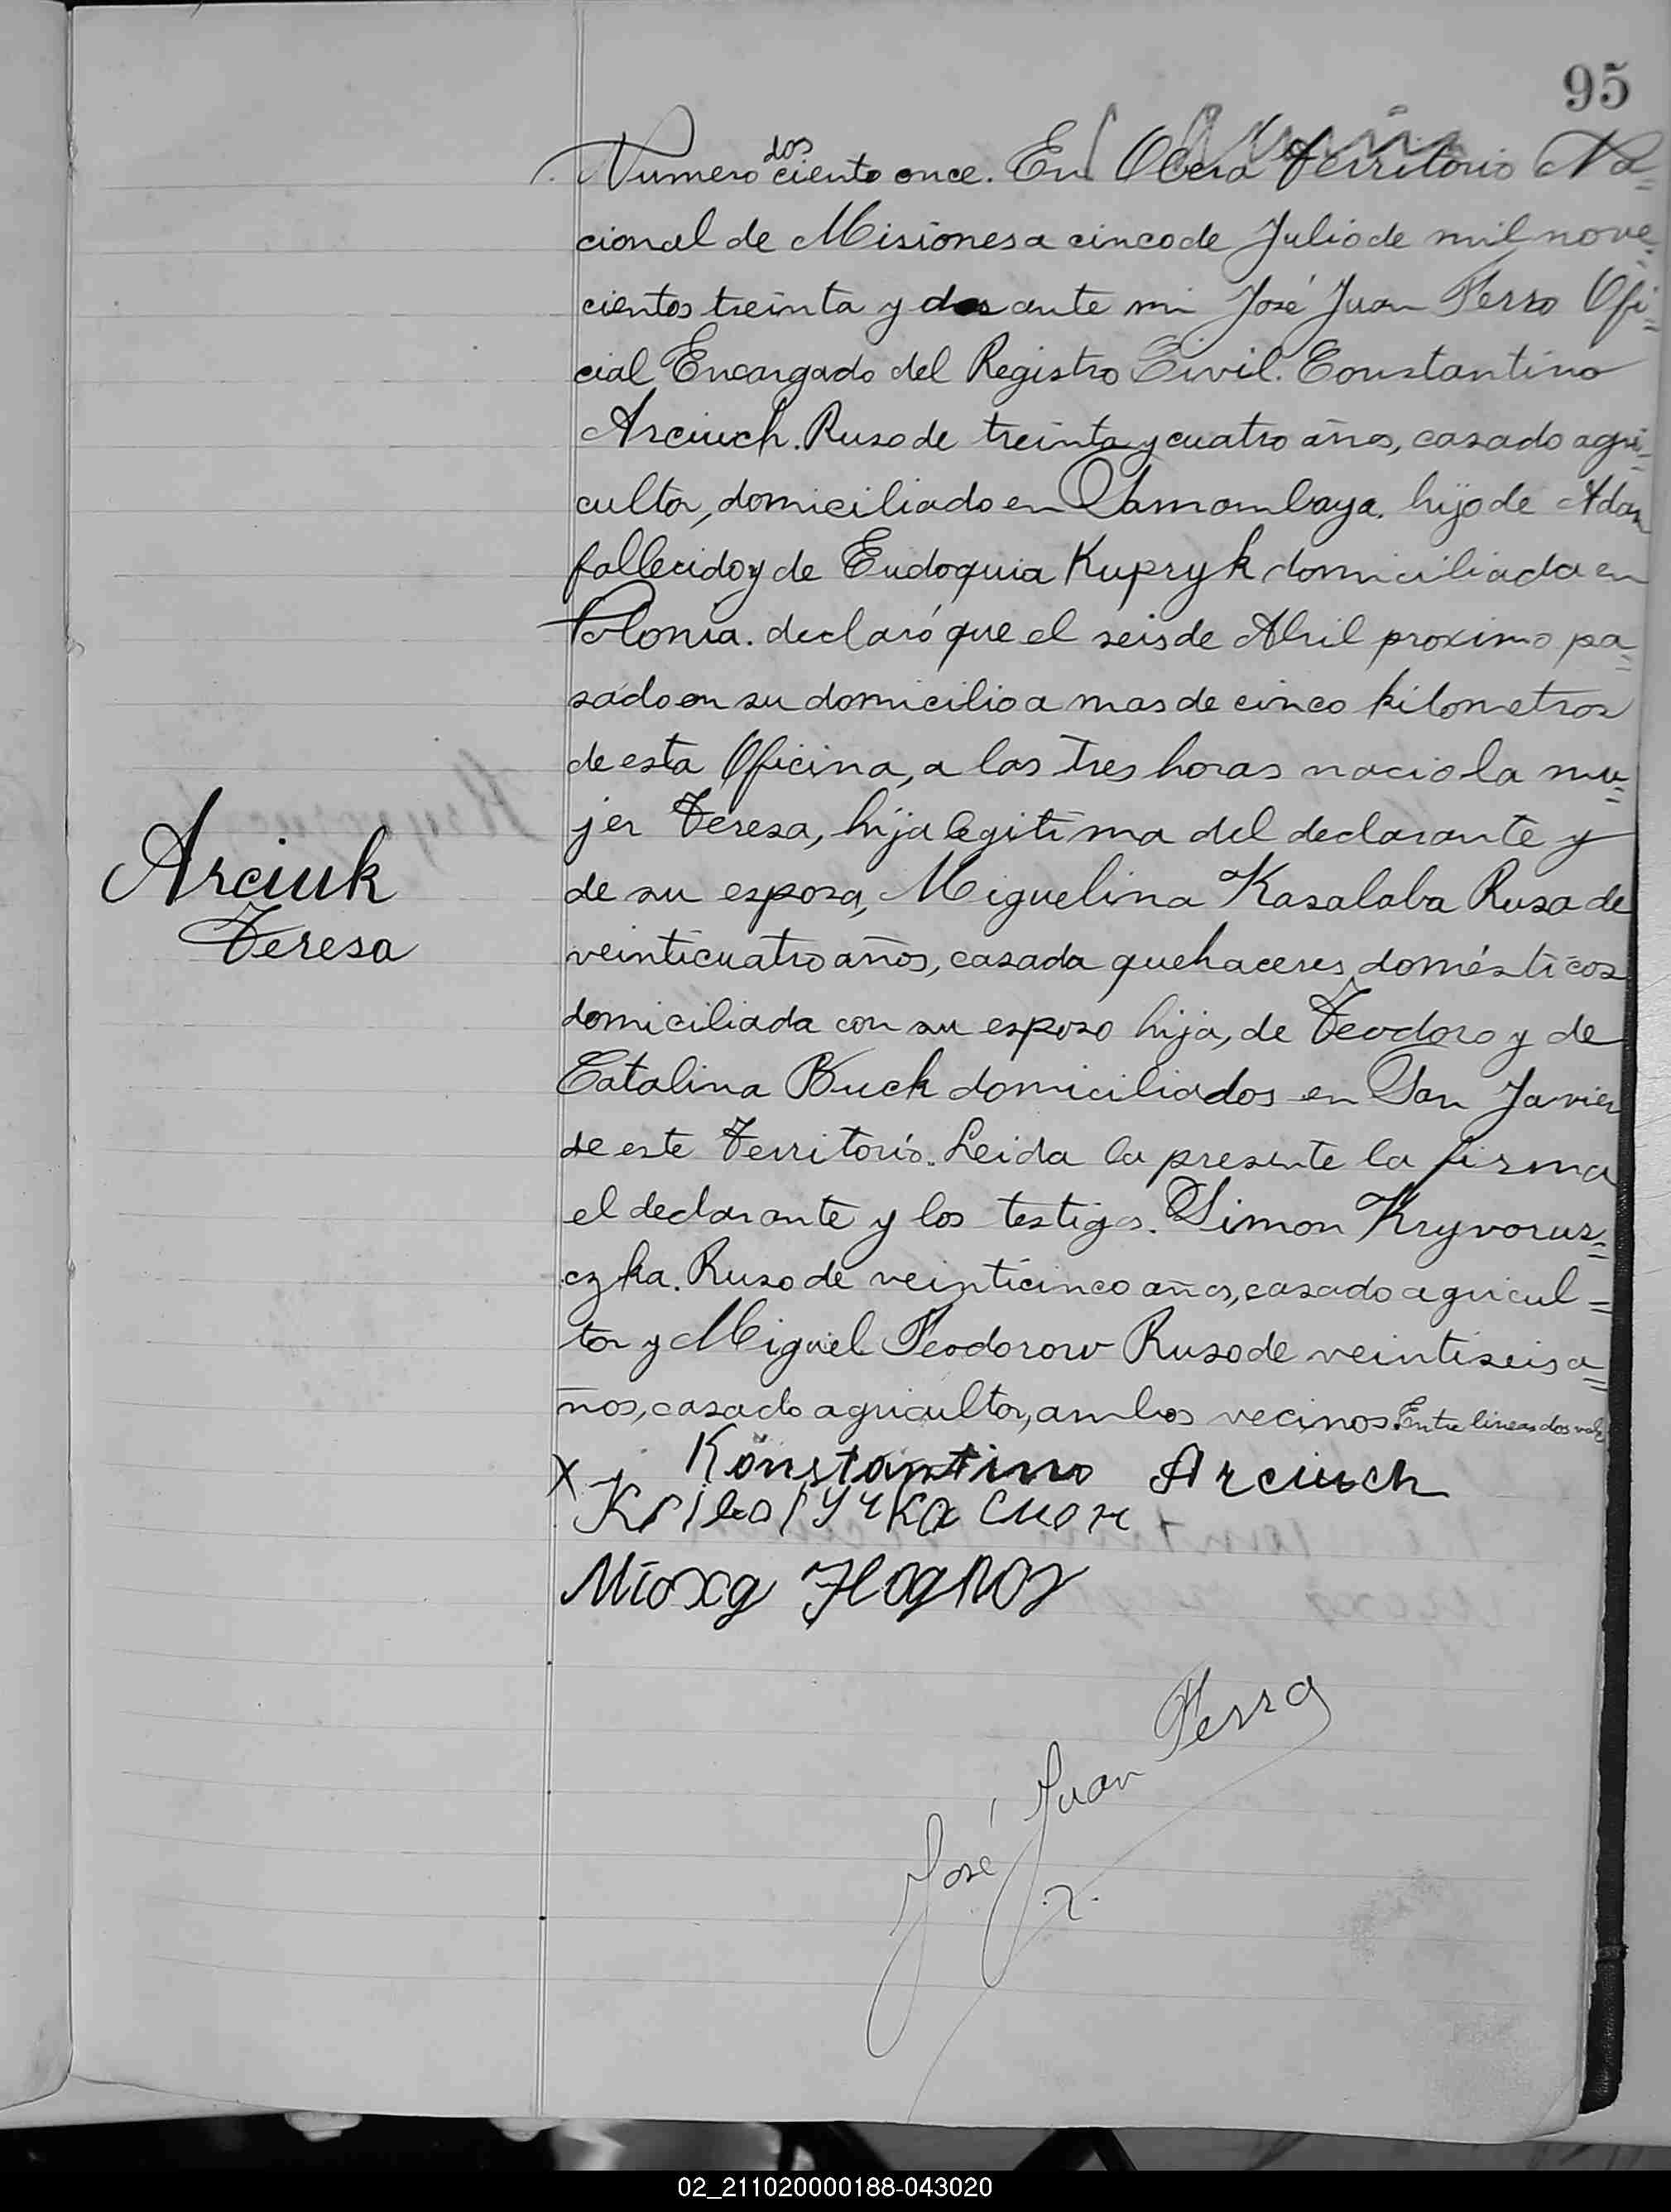 95
dos
Numero ciento once. En Oberá Territorio Na=
cional de Misiones a cinco de Julio de mil nove=
cientos treinta y dos ante mi José Juan Ferro Ofi=
cial Encargado del Registro Civil. Constantino
Arciuch. Ruso de treinta y cuatro años, casado agri=
cultor, domiciliado en Samambaya. hijo de Adan
fallecido y de Eudoquia Kupryk domiciliada en
Polonia. declaró que el seis de Abril proximo pa=
sado en su domicilio a mas de cinco kilometros
de esta Oficina, a las tres horas nacio la mu=
jer Teresa, hija legitima del declarante y
Arciuk
de su esposa, Miguelina Kasalaba Rusa de
Teresa
veinticuatro años, casada quehaceres domésticos
domiciliada con su esposo hija, de Teodoro y de
Catalina Buck domiciliados en San Javier
de este Territorio. Leida la presente la firma
el declarante y los testigos. Simon Kryvorus=
czka. Ruso de veinticinco años, casado agricul=
tor y Miguel Feodorow Ruso de veintiseis a=
ños, casado agricultor, ambos vecinos. Entre lineas dos vale
X Konstantino Arciuch
José Juan Ferro
02_211020000188-043020